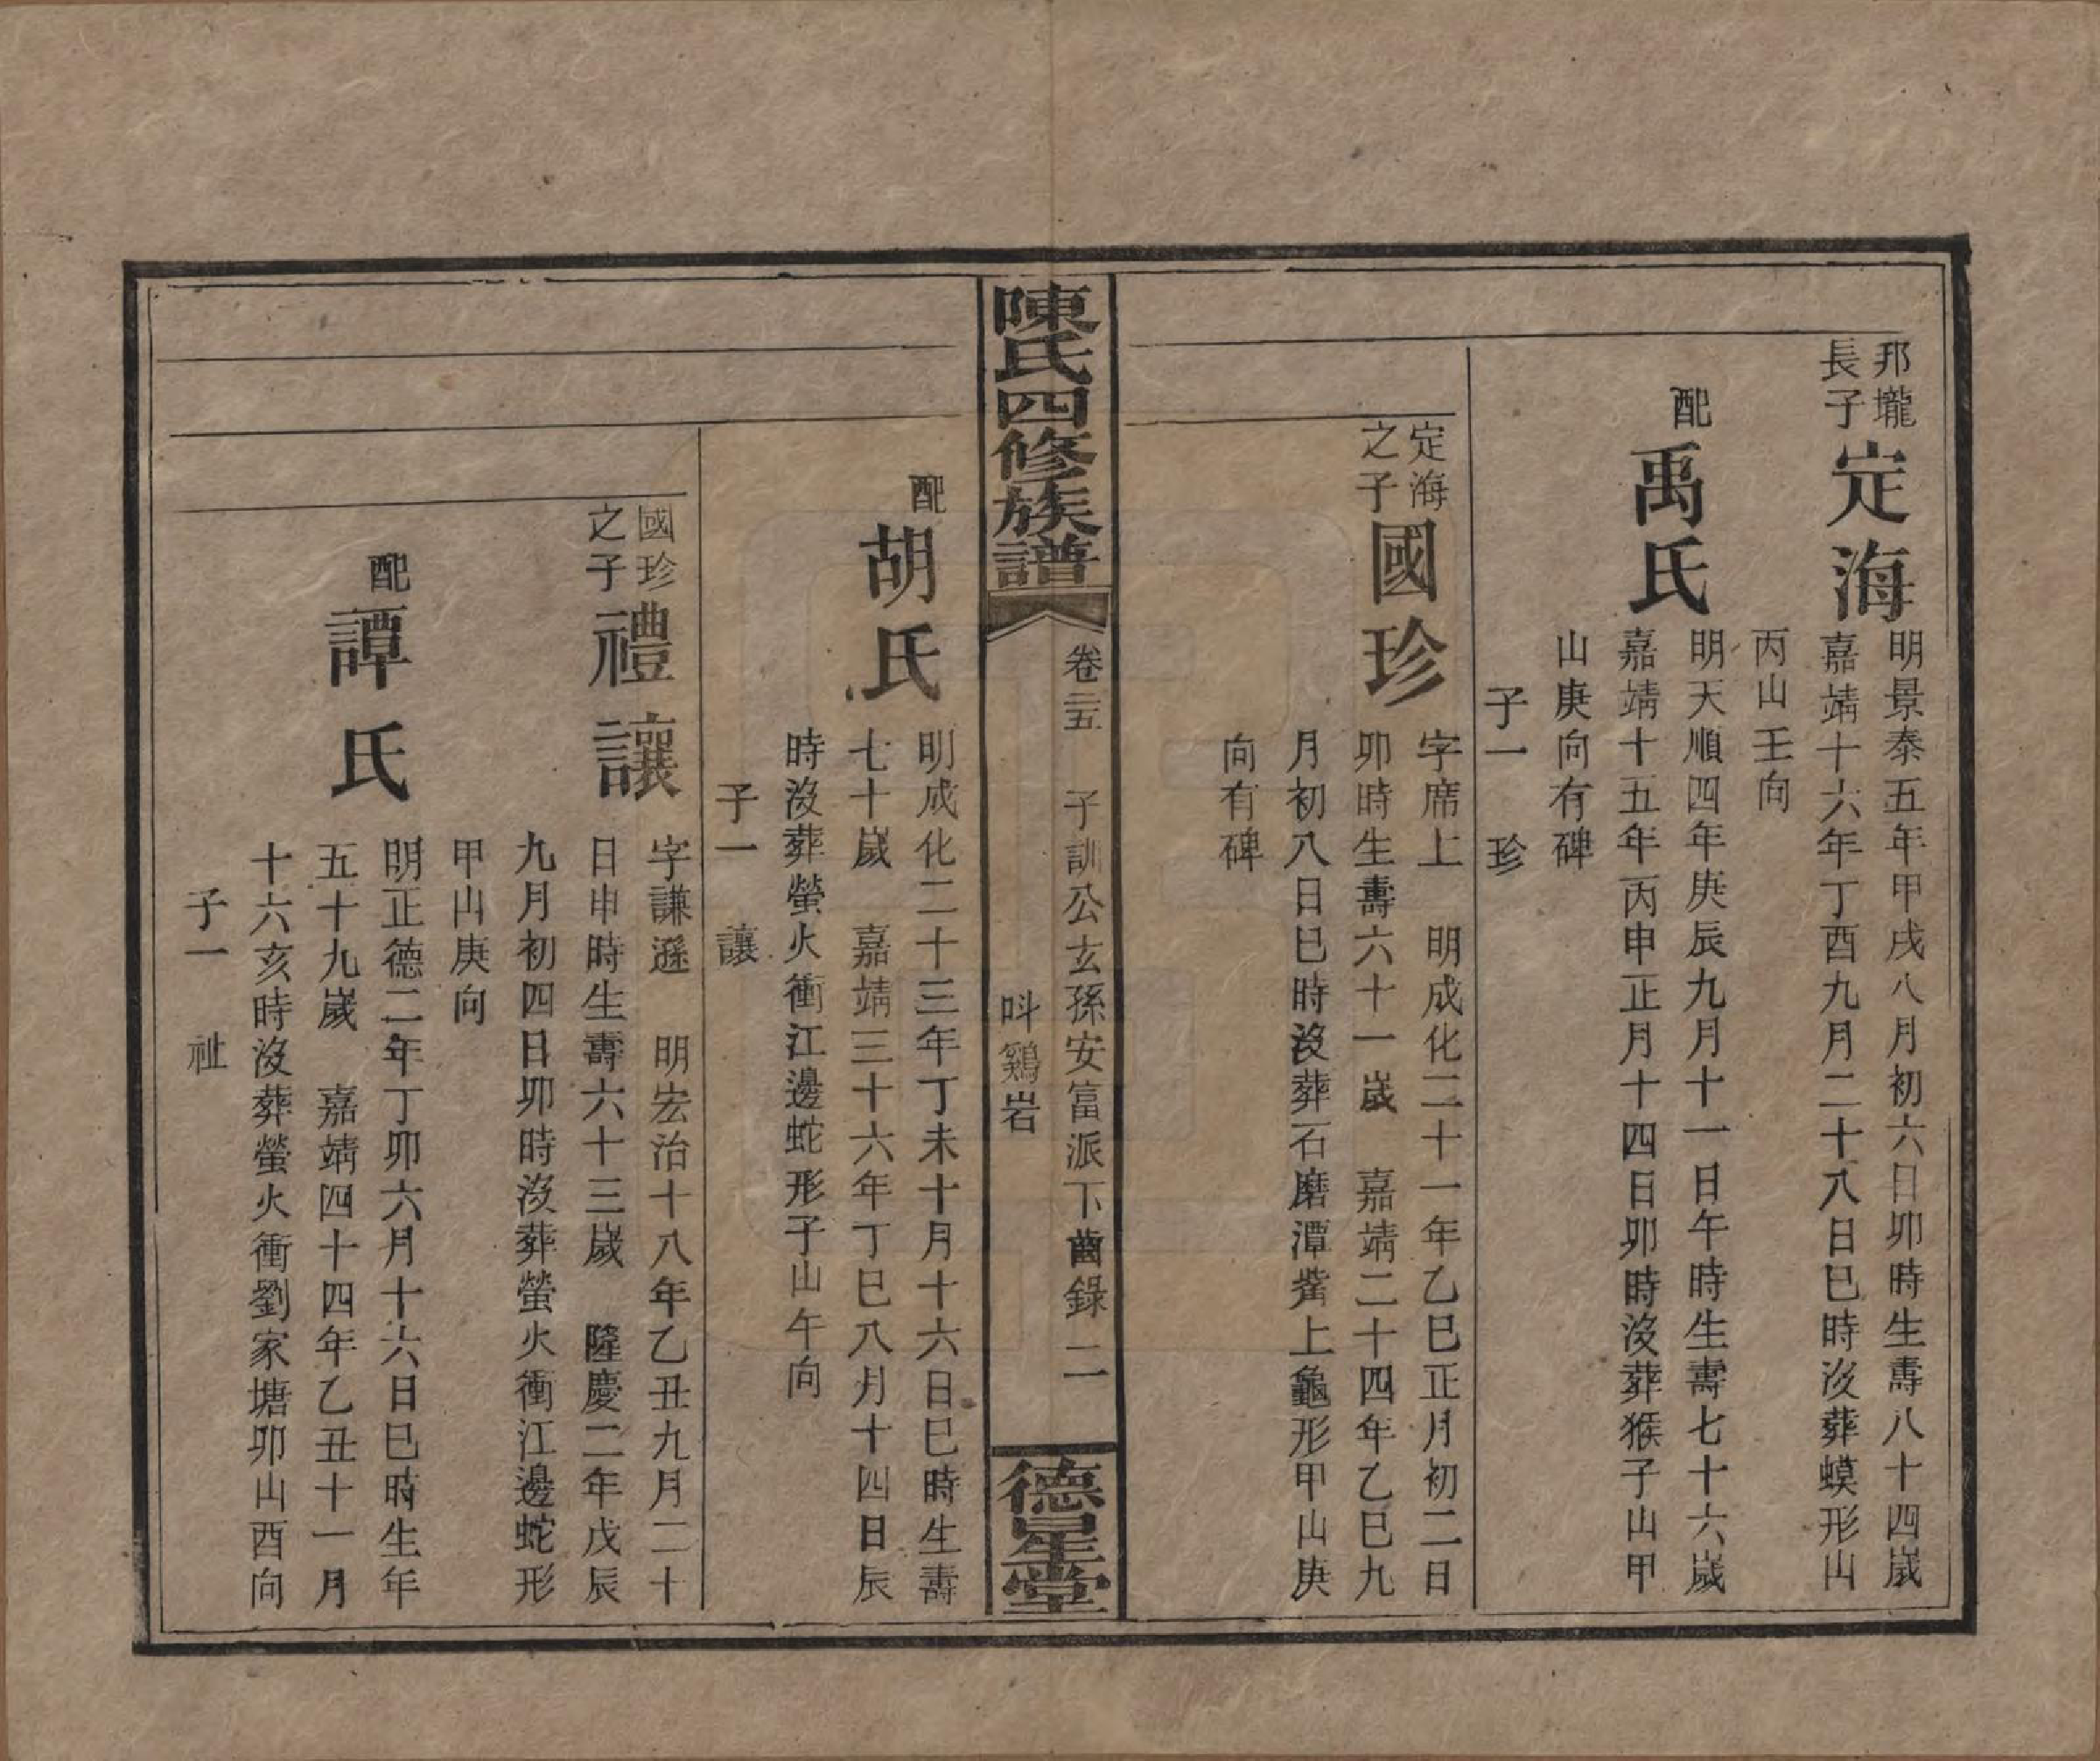 邦壠
長子
定海
明景泰五年甲戌八月初六日卯時生壽八十四歲
嘉靖十六年丁酉九月二十八日巳時沒葬蟆形山
丙山壬向
配
禹氏
明天順四年庚辰九月十一日午時生壽七十六歲
嘉靖十五年丙申正月十四日卯時沒葬猴子山甲
山庚向有碑
子一　珍
定海
之子
國珍
字席上　明成化二十一年乙巳正月初二日
卯時生壽六十一歲　嘉靖二十四年乙巳九
月初八日巳時沒葬石磨潭觜上龜形甲山庚
向有碑
陳氏四修族譜
卷三五　子訓公玄孫安富派下齒錄　二
呌鷄岩
德星堂
配
胡氏
明成化二十三年丁未十月十六日巳時生壽
七十歲　嘉靖三十六年丁巳八月十四日辰
時沒葬螢火衝江邊蛇形子山午向
子一　讓
國珍
之子
禮讓
字謙遜　明宏治十八年乙丑九月二十
日申時生壽六十三歲　隆慶二年戊辰
九月初四日卯時沒葬螢火衝江邊蛇形
甲山庚向
配
譚氏
明正德二年丁卯六月十六日巳時生年
五十九歲　嘉靖四十四年乙丑十一月
十六亥時沒葬螢火衝劉家塘卯山酉向
子一　祉